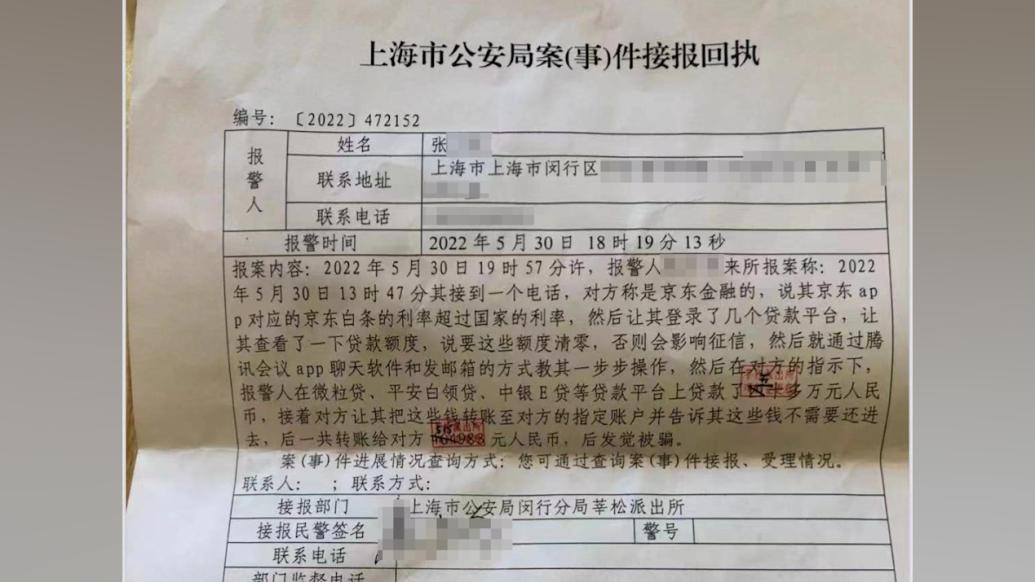 上海市公安局案(事)件接报回执
编号：〔2022〕472152
报警人
姓名 张
联系地址 上海市上海市闵行区
联系电话
报警时间 2022 年 5 月 30 日 18 时 19 分 13 秒
报案内容：2022 年 5 月 30 日 19 时 57 分许，报警人 来所报案称：2022
年 5 月 30 日 13 时 47 分其接到一个电话，对方称是京东金融的，说其京东 ap
p 对应的京东白条的利率超过国家的利率，然后让其登录了几个贷款平台，让
其查看了一下贷款额度，说要这些额度清零，否则会影响征信，然后就通过腾
讯会议 app 聊天软件和发邮箱的方式教其一步步操作，然后在对方的指示下，
报警人在微粒贷、平安白领贷、中银 E 贷等贷款平台上贷款了 多万元人民
币，接着对方让其把这些钱转账至对方的指定账户并告诉其这些钱不需要还进
去，后一共转账给对方 元人民币，后发觉被骗。
案(事)件进展情况查询方式：您可通过查询案(事)件接报、受理情况。
联系人： ；联系方式：
接报部门 上海市公安局闵行分局莘松派出所
接报民警签名 警号
联系电话
部门监督电话